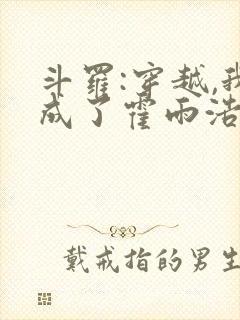 斗罗:穿越,我
成了霍雨浩
戴戒指的男生